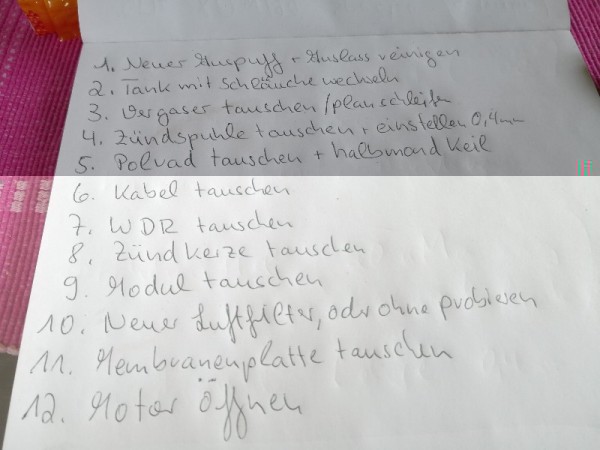 1. Neuer Auspuff + Auslass reinigen
2. Tank mit Schläuche wechseln
3. Vergaser tauschen/planschleifen
4. Zündspuhle tauschen + einstellen 0,4mm
5. Polrad tauschen + halbmond Keil
6. Kabel tauschen
7. WDR tauschen
8. Zündkerze tauschen
9. Modul tauschen
10. Neuer Luftfilter, odr ohne probieren
11. Membranenplatte tauschen
12. Motor öffnen